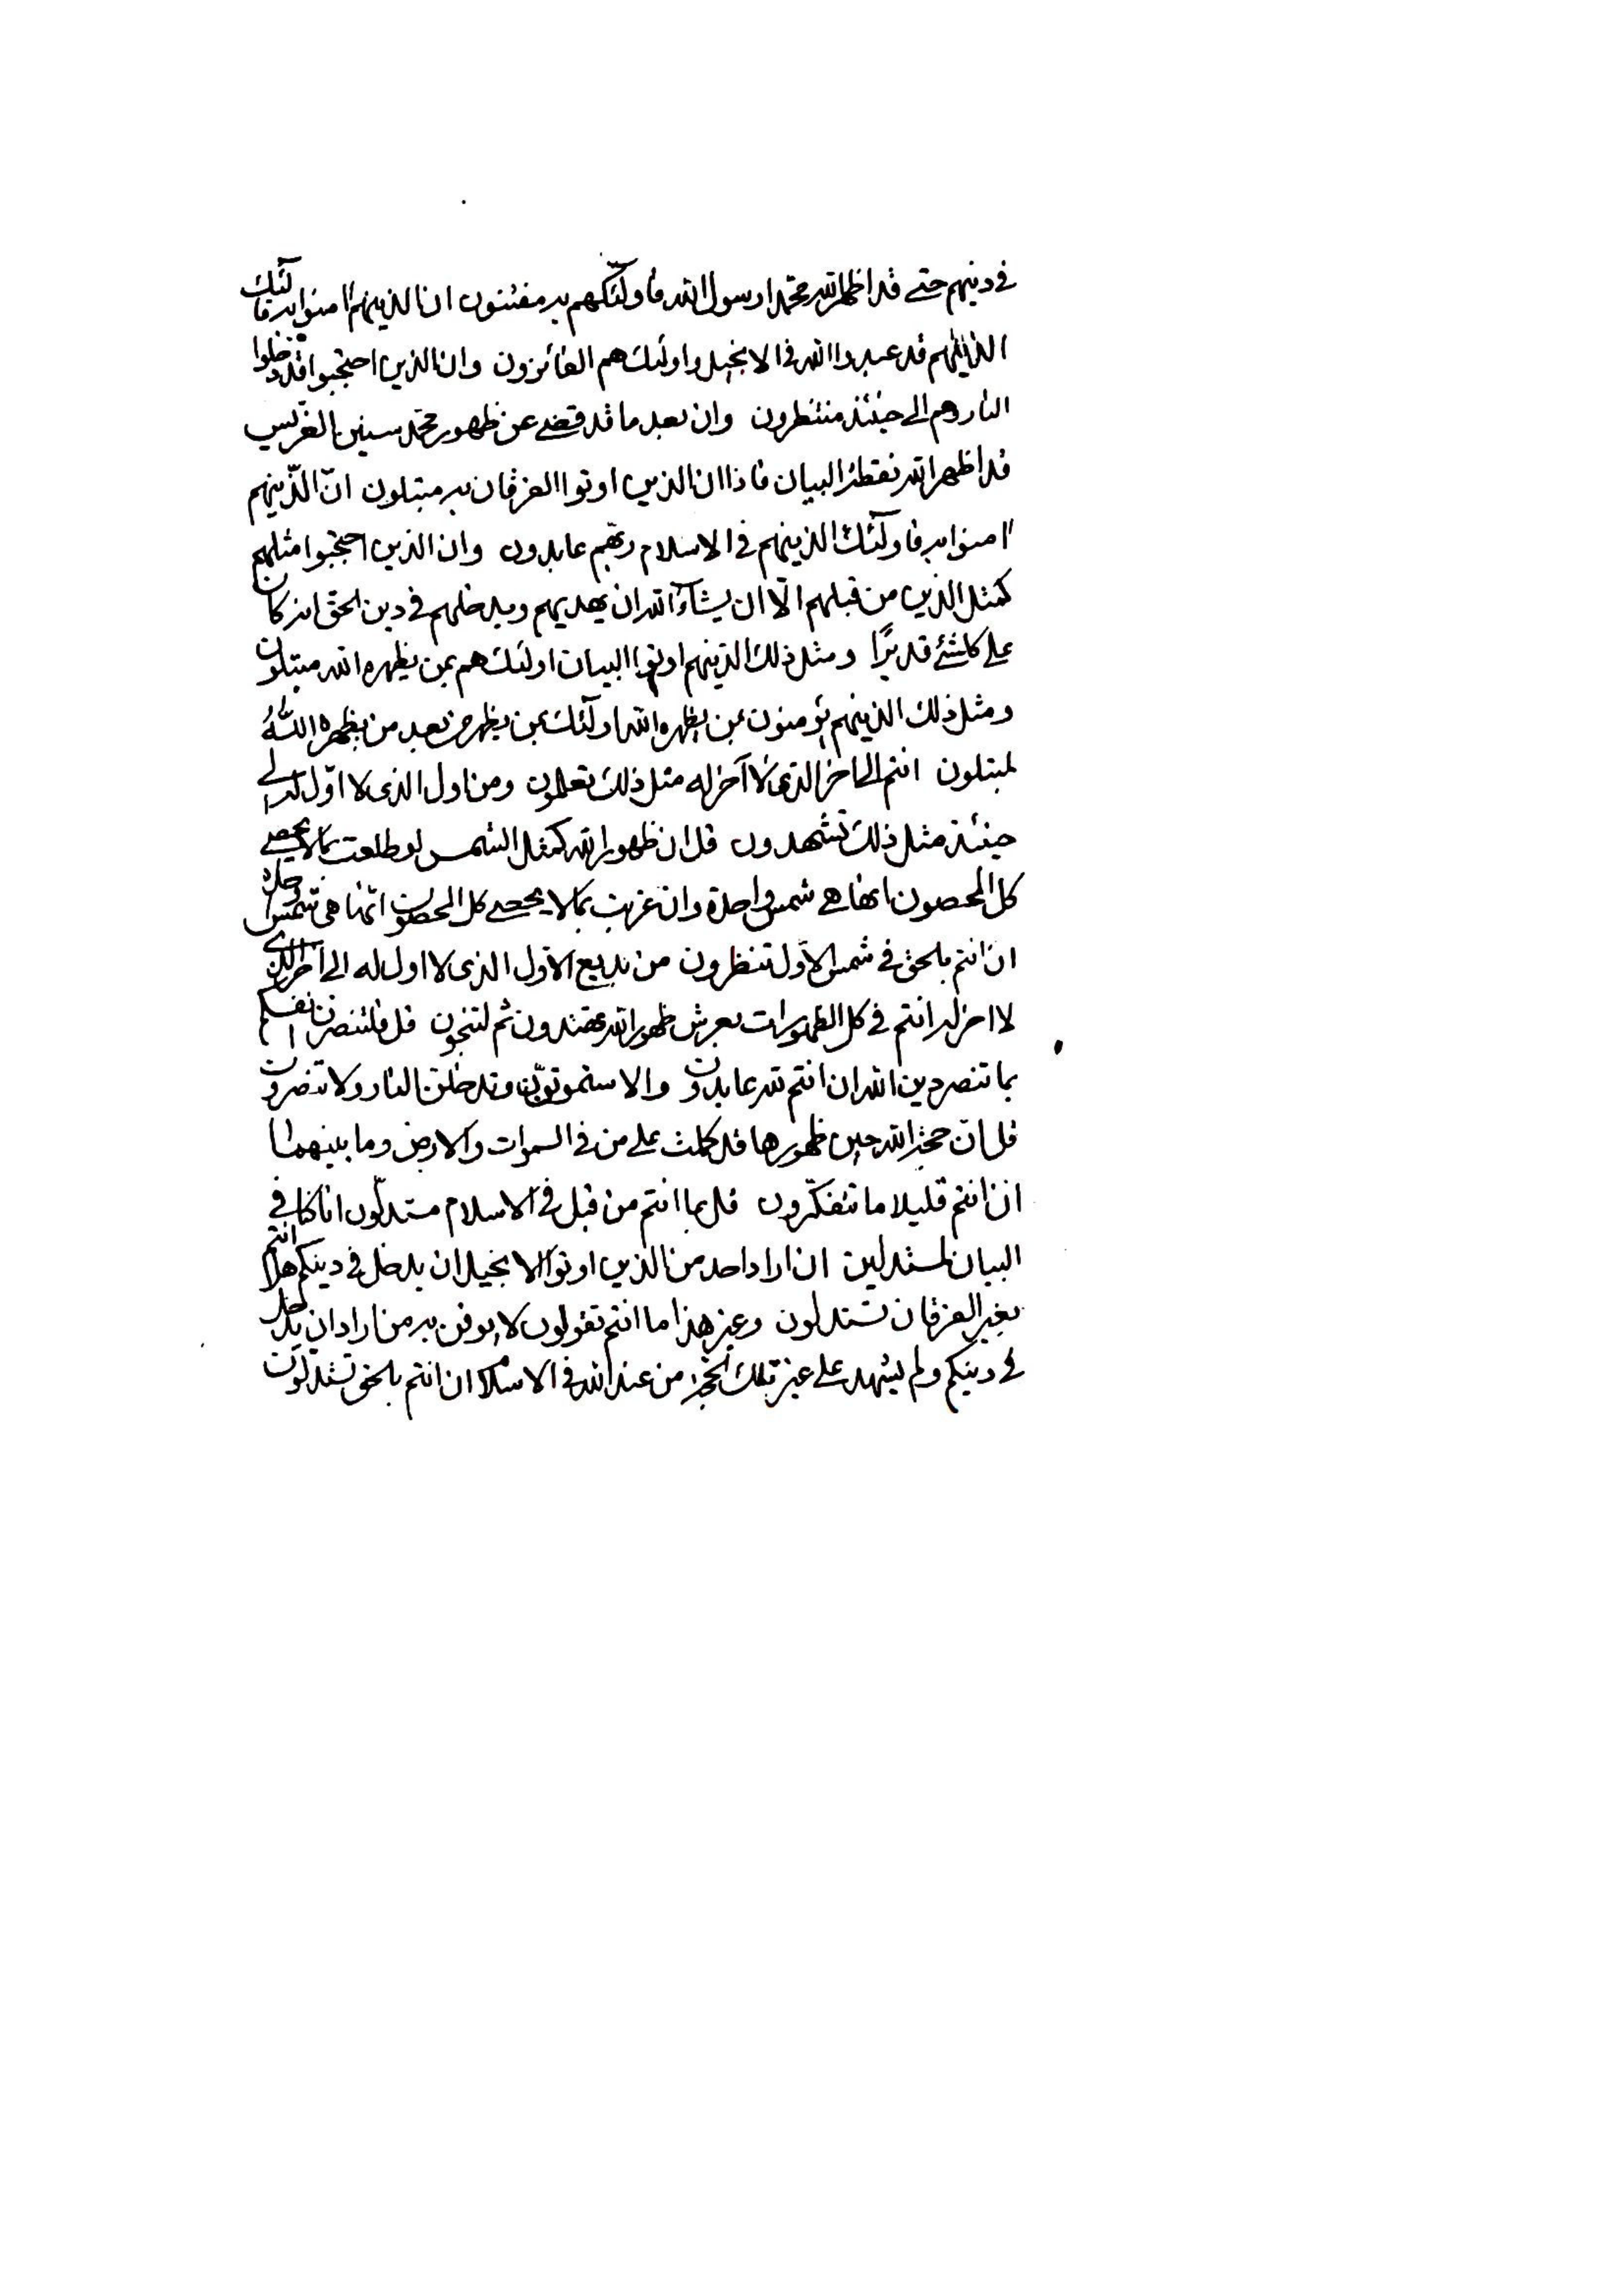 في دينهم حتى قد اظهر الله محمدا رسول الله فاولئك هم به مفتنون ان الذينهم امنوا به فاولئك
الذينهم قد عبدوا الله في الانجيل واولئك هم الفائزون وان الذين احتجبوا قد دخلوا
النار وهم الى حينئذ منتظرون وان بعد ما قد قضى عن ظهور محمد سنين الغرس
قد اظهر الله نقطة البيان فاذا ان الذين اوتوا الفرقان به مبتلون انّ الذينهم
امنوا به فاولئك الذينهم في الاسلام ربهم عابدون وان الذين احتجبوا مثلهم
كمثل الذين من قبلهم الّا ان يشآء الله ان يهديهم ويدخلهم في دين الحق انه كان
على كلشئ قديرًا ومثل ذلك الذينهم اوتوا البيان اولئك هم بمن يظهره الله مبتلون
ومثل ذلك الذينهم يؤمنون بمن يظهره الله اولئك بمن يظهر من بعد من يظهره اللّه
لمبتلون انتم الى اخر الذي لا آخر له مثل ذلك تعلمون ومن اول الذى لا اوّل له الى
حينئذ مثل ذلك تشهدون قل ان ظهور الله كمثل الشمس لو طلعت بما لا يحصى
كل المحصون انها هي شمس واحدة وان غربت بما لا يحصى كل المحصون انّها هى شمس واحدة
ان انتم بالحق في شمس الاوّل تنظرون من بديع الاوّل الذى لا اول له الى آخر الذى
لا اخر له انتم في كل الظهورات بعرش ظهور الله تهتدون ثم لتنجون قل فلتنصرن انفسكم
بما تنصر دين الله ان انتم لله عابدون والا ستموتوّن وتدخلن النار ولا تنصرون
قل انّ حجة الله حين ظهورها قد كملت على من في السموات والارض وما بينهما
ان انتم قليلا ما تتفكّرون قل بما انتم من قبل في الاسلام مستدلّون انا كنا في
البيان لمستدلين ان اراد احد من الذين اوتوا الانجيل ان يدخل في دينكم هل انتم
بغير الفرقان تستدلون وغير هذا ما انتم تقولون لا يوقن به من اراد ان يدخل
في دينكم ولم يشهد على غير تلك الحجة من عند الله في الاسلام ان انتم بالحق تستدلّون